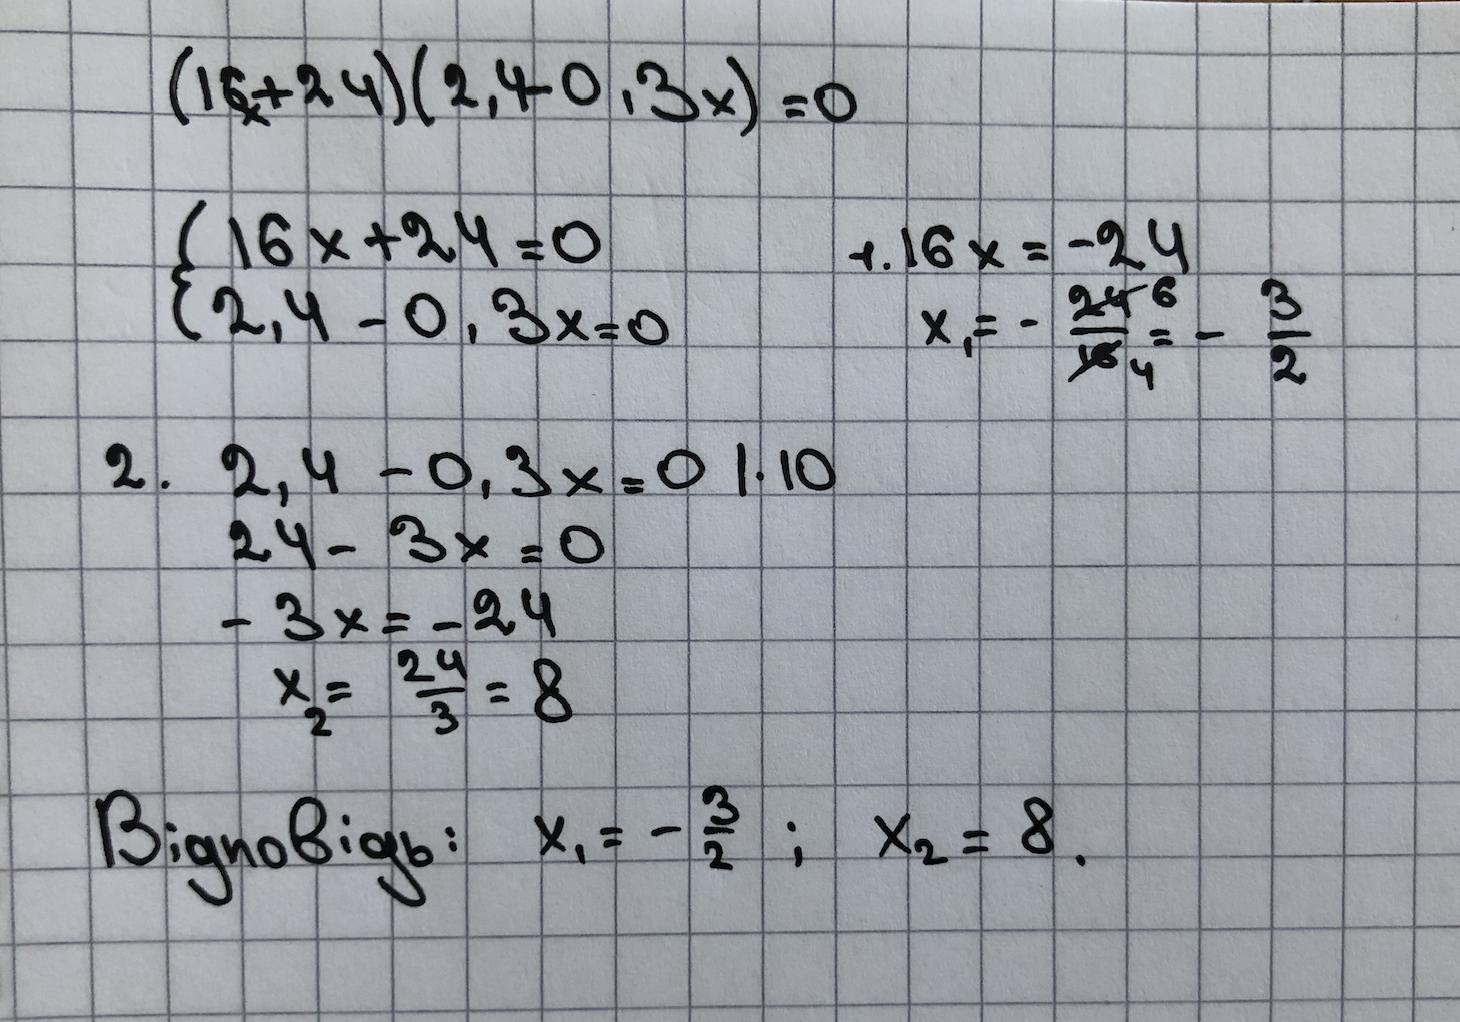 (16x+24)(2,4-0,3x)=0
{ 16x+24=0
2,4-0,3x=0
1. 16x=-24
x₁=-24/16 6/4=-3/2
2. 2,4-0,3x=0 |·10
24-3x=0
-3x=-24
x₂=24/3=8
Відповідь: x₁=-3/2; x₂=8.